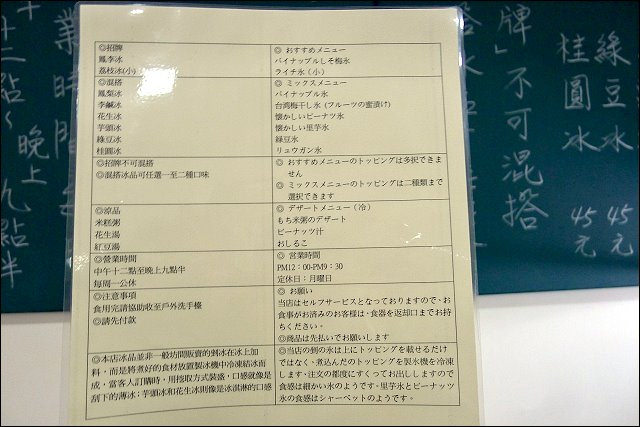 ◎招牌
鳳李冰
荔枝冰(小)
◎ おすすめメニュー
パイナップルしそ梅氷
ライチ氷（小）
◎混搭
鳳梨冰
李鹹冰
花生冰
芋頭冰
綠豆冰
桂圓冰
◎ ミックスメニュー
パイナップル氷
台湾梅干し氷 (フルーツの蜜漬け)
懐かしいピーナツ氷
懐かしい里芋氷
緑豆氷
リュウガン氷
◎招牌不可混搭
◎混搭冰品可任選一至二種口味
◎ おすすめメニューのトッピングは多択できま
せん
◎ ミックスメニューのトッピングは二種類まで
選択できます
◎涼品
米糕粥
花生湯
紅豆湯
◎ デザートメニュー（冷）
もち米粥のデザート
ピーナッツ汁
おしるこ
◎營業時間
中午十二點至晚上九點半
每周一公休
◎ 営業時間
PM12：00-PM9：30
定休日：月曜日
◎注意事項
食用完請協助收至戶外洗手檯
◎請先付款
◎ お願い
当店はセルフサービスとなっておりますので、お
食事がお済みのお客様は、食器を返却口までお持
ちください。
◎商品は先払いでお願いします
◎本店冰品並非一般坊間販賣的剉冰在冰上加
料，而是將煮好的食材放置製冰機中冷凍結冰而
成，當客人訂購時，用挖取方式裝盛，口感就像是
刮下的薄冰；芋頭冰和花生冰則像是冰淇淋的口感
◎当店の氷は上にトッピングを載せるだけ
ではなく、煮込んだのトッピングを製氷機を冷凍
します、注文の都度にすくってお出ししますので
食感は細かい氷のようです。里芋氷とピーナッツ
氷の食感はシャーベットのようです。
牌」不可混搭
綠豆冰 45元
桂圓冰 45元
業時間
十二點～晚上九點半